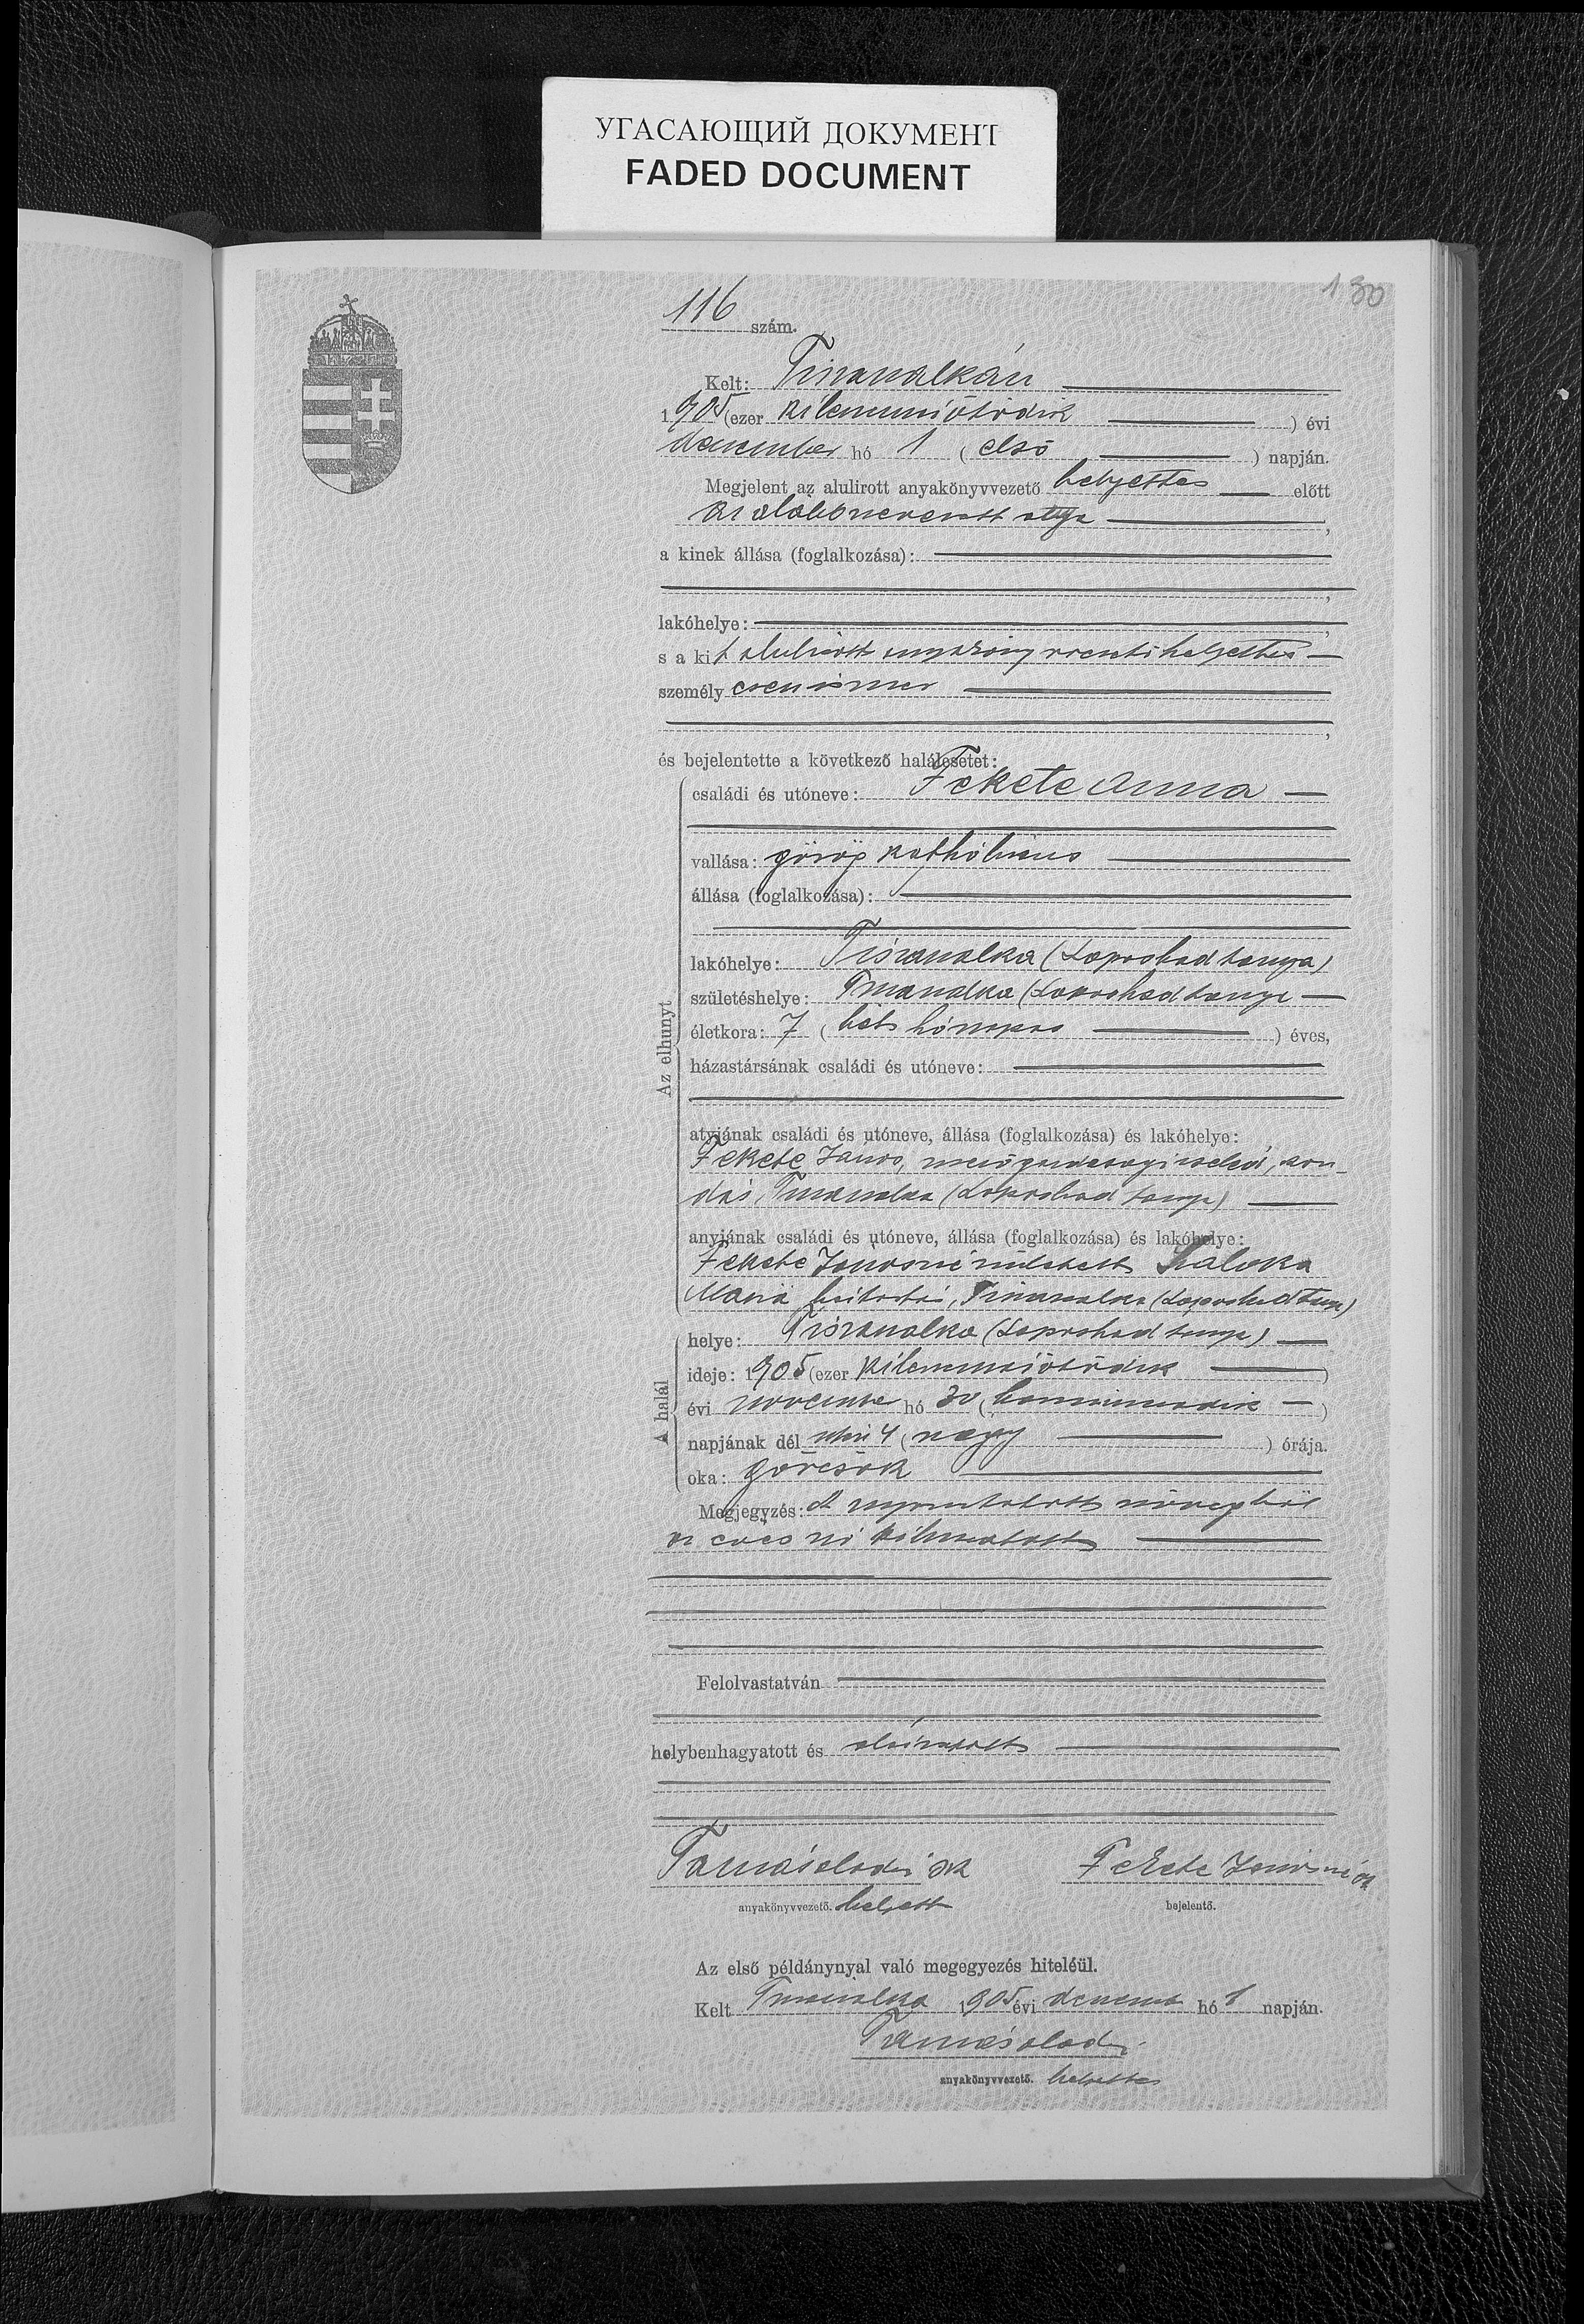 УГАСАЮЩИЙ ДОКУМЕНТ
FADED DOCUMENT
130
116 szám.
Kelt: Tiszasalkán
1905 (ezer kilencszázötödik ) évi
december hó 1 ( első ) napján.
Megjelent az alulirott anyakönyvvezető helyettes előtt
az alább nevezett
a kinek állása (foglalkozása):
lakóhelye:
s a kit alulirott anyakönyvvezető helyettes
személyesen ismer
és bejelentette a következő halálesetet:
Az elhunyt
családi és utóneve: Fekete Anna
vallása: görög katholikus
állása (foglalkozása):
lakóhelye: tanya)
születéshelye: tanya
életkora: 7 ( hét hónapos ) éves,
házastársának családi és utóneve:
atyjának családi és utóneve, állása (foglalkozása) és lakóhelye:
Fekete János, mezőgazdasági cseléd, kon-
dás, tanya)
anyjának családi és utóneve, állása (foglalkozása) és lakóhelye:
Fekete Jánosné született
Mária háztartás,
A halál
helye: tanya)
ideje: 1905 (ezer kilencszázötödik )
évi november hó 30 ( harmincadik )
napjának dél utáni 4 ( négy ) órája.
oka: görcsök
Megjegyzés: A nyomtatott szövegből
az éves szó kihuzatott
Felolvastatván
helybenhagyatott és aláiratott
sk Fekete Jánosné sk
anyakönyvvezető. helyett bejelentő.
Az első példánynyal való megegyezés hiteléül.
Kelt 1905 évi decemb hó 1 napján.
anyakönyvvezető. helyettes